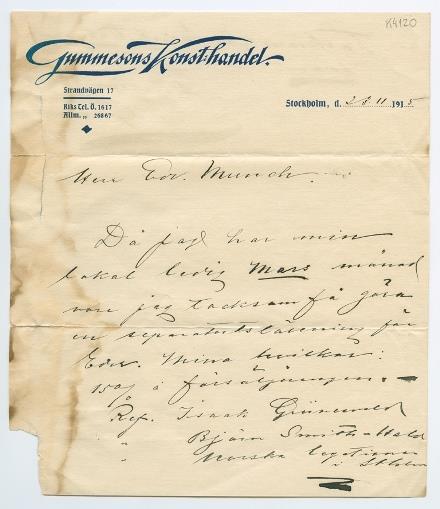 K4120
Gummesons Konsthandel.
Strandvägen 17
Riks Tel. Ö. 1617
Allm. „ 26867
Stockholm, d. 23 11 1915
Herr Edv. Munch.
Då jag har min
lokal ledig Mars månad
vore jag tacksam få göra
en separatutställning för
Eder. Mina villkor:
15% å försäljningen. –
Ref. Isaak Grünewald
„ Björn Smith-Hald
„ Norska legationen
i Stholm